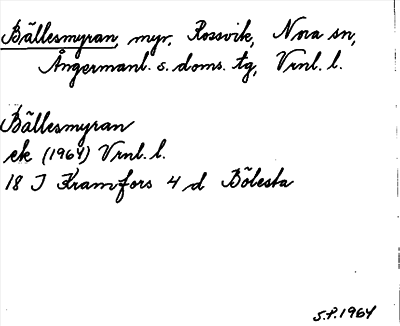 Bällesmyran, myr, Rossvik, Nora sn,
Ångermanl. s. doms. tg, Vrnl. l.
Bällesmyran
ek (1964) Vrnl. l.
18 I Kramfors 4 d Bölesta
S.P. 1964